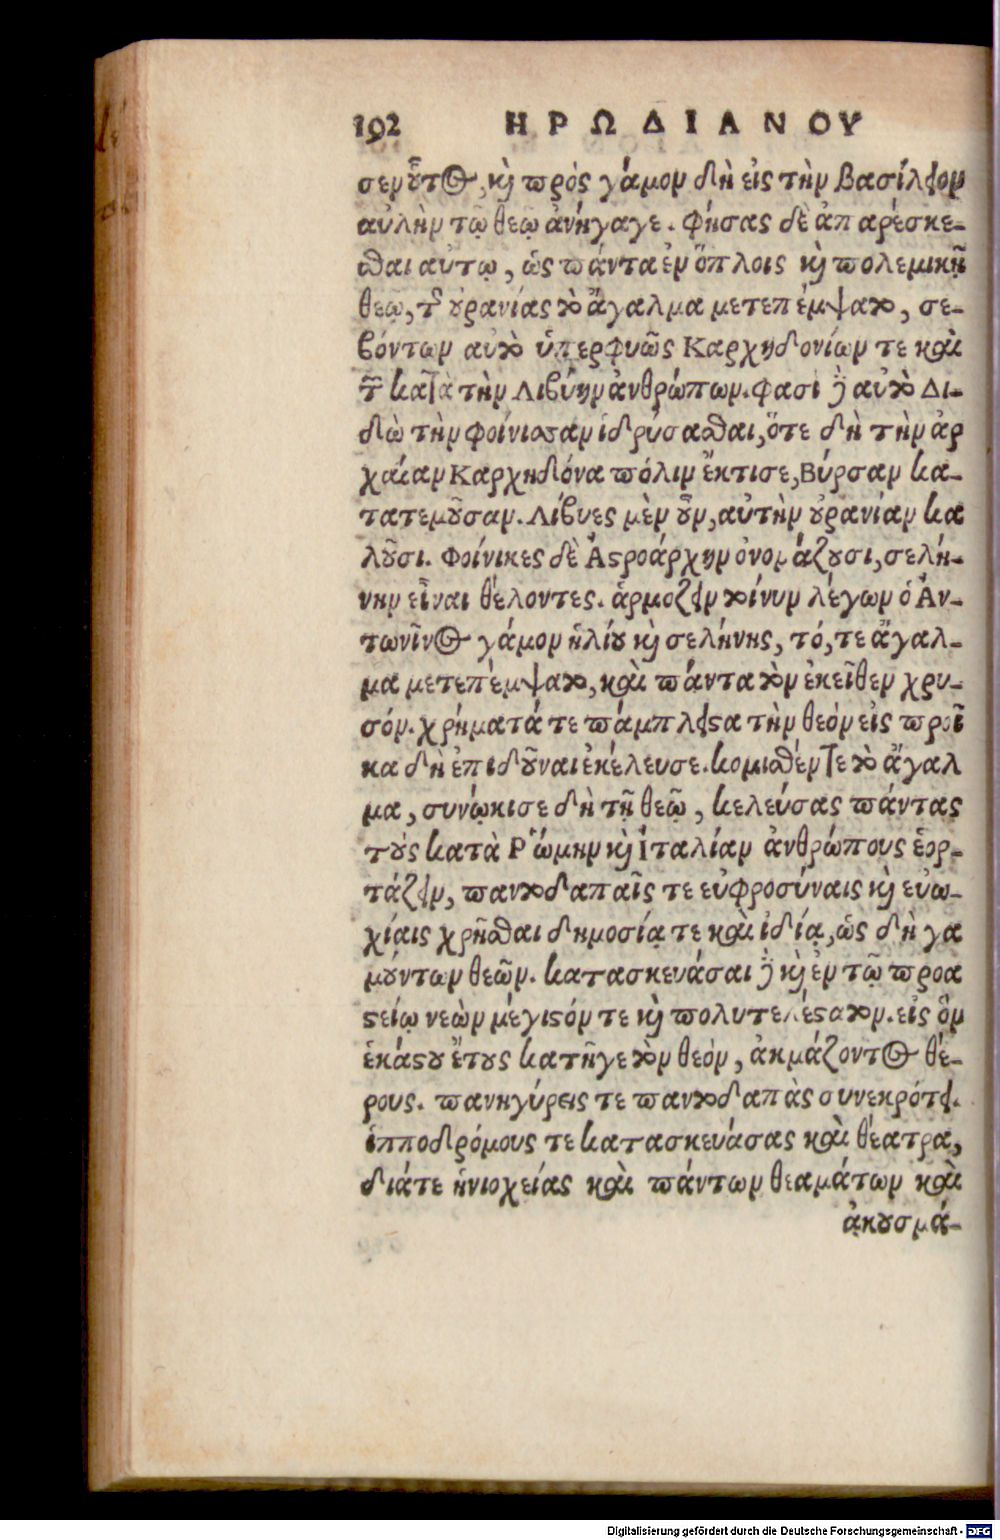 192 ΗΡΩΔΙΑΝΟΥ
σεν οὗτος, καὶ πρὸς γάμον δὴ εἰς τὴν βασίλειον
αὐλὴν τῷ θεῷ ἀνήγαγε. Φήσας δὲ ἀπαρέσκε-
σθαι αὐτῷ, ὡς πάντα ἐν ὅπλοις καὶ πολεμικῇ
θεῷ, τῆς οὐρανίας τὸ ἄγαλμα μετεπέμψατο, σε-
βόντων αὐτὸ ὑπερφυῶς Καρχηδονίων τε καὶ
τῶν κατὰ τὴν Λιβύην ἀνθρώπων. φασὶ δὲ αὐτὸ Δι-
δὼ τὴν φοίνισσαν ἱδρύσασθαι, ὅτε δὴ τὴν ἀρ
χαίαν Καρχηδόνα πόλιν ἔκτισε, Βύρσαν κα-
τατεμοῦσαν. Λίβυες μὲν οὖν, αὐτὴν οὐρανίαν κα
λοῦσι. Φοίνικες δὲ Ἀστροάρχην ὀνομάζουσι, σελή-
νην εἶναι θέλοντες. ἁρμόζειν τοίνυν λέγων ὁ Ἀν-
τωνῖνος γάμον ἡλίου καὶ σελήνης, τό, τε ἄγαλ-
μα μετεπέμψατο, καὶ πάντα τὸν ἐκεῖθεν χρυ-
σόν. χρήματά τε πάμπλειστα τὴν θεὸν εἰς προῖ
κα δὴ ἐπιδοῦναι ἐκέλευσε. κομισθέν τε τὸ ἄγαλ
μα, συνῴκισε δὴ τῇ θεῷ, κελεύσας πάντας
τοὺς κατὰ Ῥώμην καὶ Ἰταλίαν ἀνθρώπους ἑορ-
τάζειν, παντοδαπαῖς τε εὐφροσύναις καὶ εὐω-
χίαις χρῆσθαι δημοσίᾳ τε καὶ ἰδίᾳ, ὡς δὴ γα
μούντων θεῶν. κατασκευάσαι δὲ καὶ ἐν τῷ προα
στείῳ νεὼν μέγιστόν τε καὶ πολυτελέστατον. εἰς ὃν
ἑκάστου ἔτους κατῆγε τὸν θεόν, ἀκμάζοντος θέ-
ρους. πανηγύρεις τε παντοδαπὰς συνεκρότει.
ἱπποδρόμους τε κατασκευάσας καὶ θέατρα,
διάτε ἡνιοχείας καὶ πάντων θεαμάτων καὶ
ἀκουσμά-
Digitalisierung gefördert durch die Deutsche Forschungsgemeinschaft - DFG